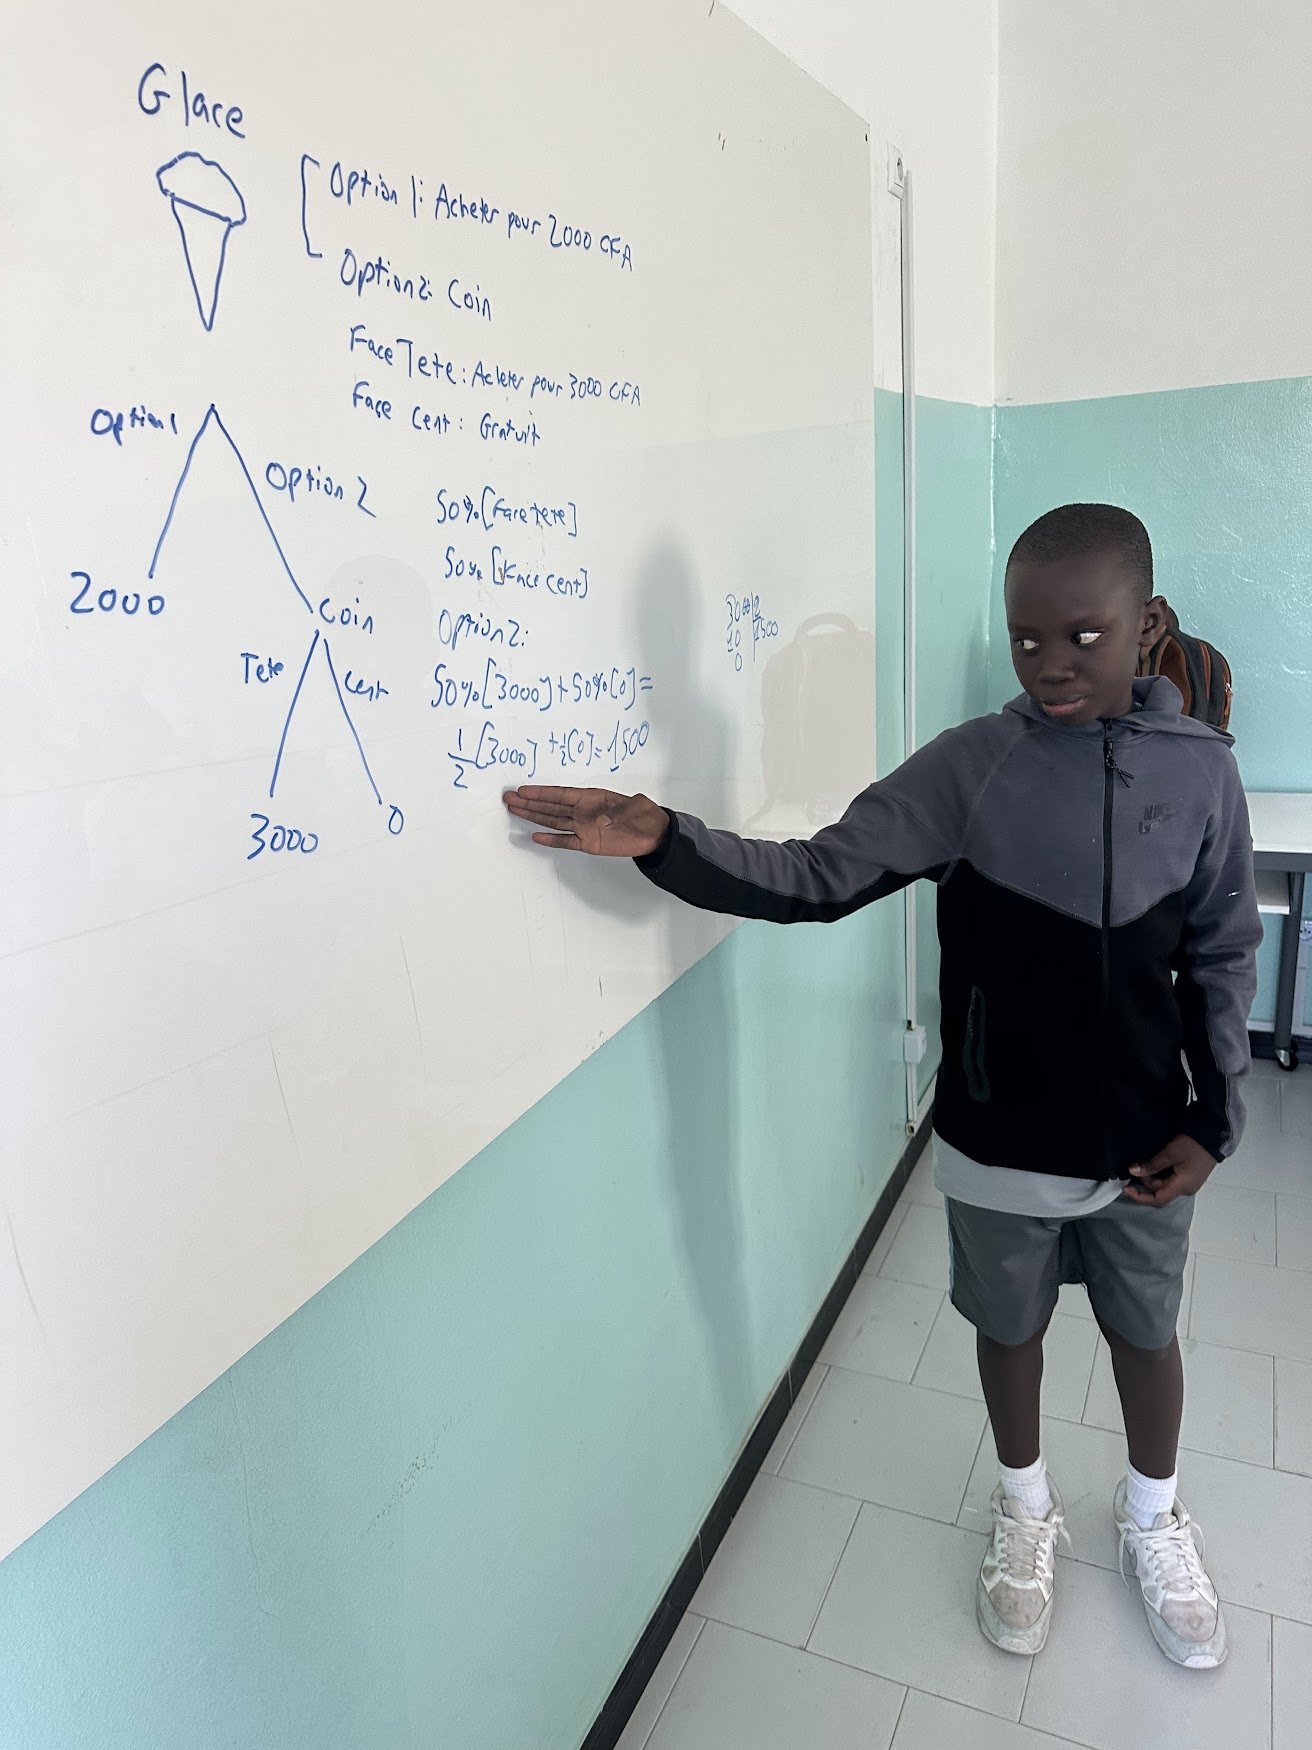 Glace
Option 1: Acheter pour 2000 CFA
Option 2: Coin
Face Tete: Acheter pour 3000 CFA
Face Cent: Gratuit
Option 1
Option 2
2000
Coin
Tete
Cent
3000
0
50% [Face tete]
50% [Face cent]
Option 2:
50% [3000] + 50% [0] =
1/2 [3000] + 1/2 [0] = 1500
3000 2
10 1500
0
NIKE